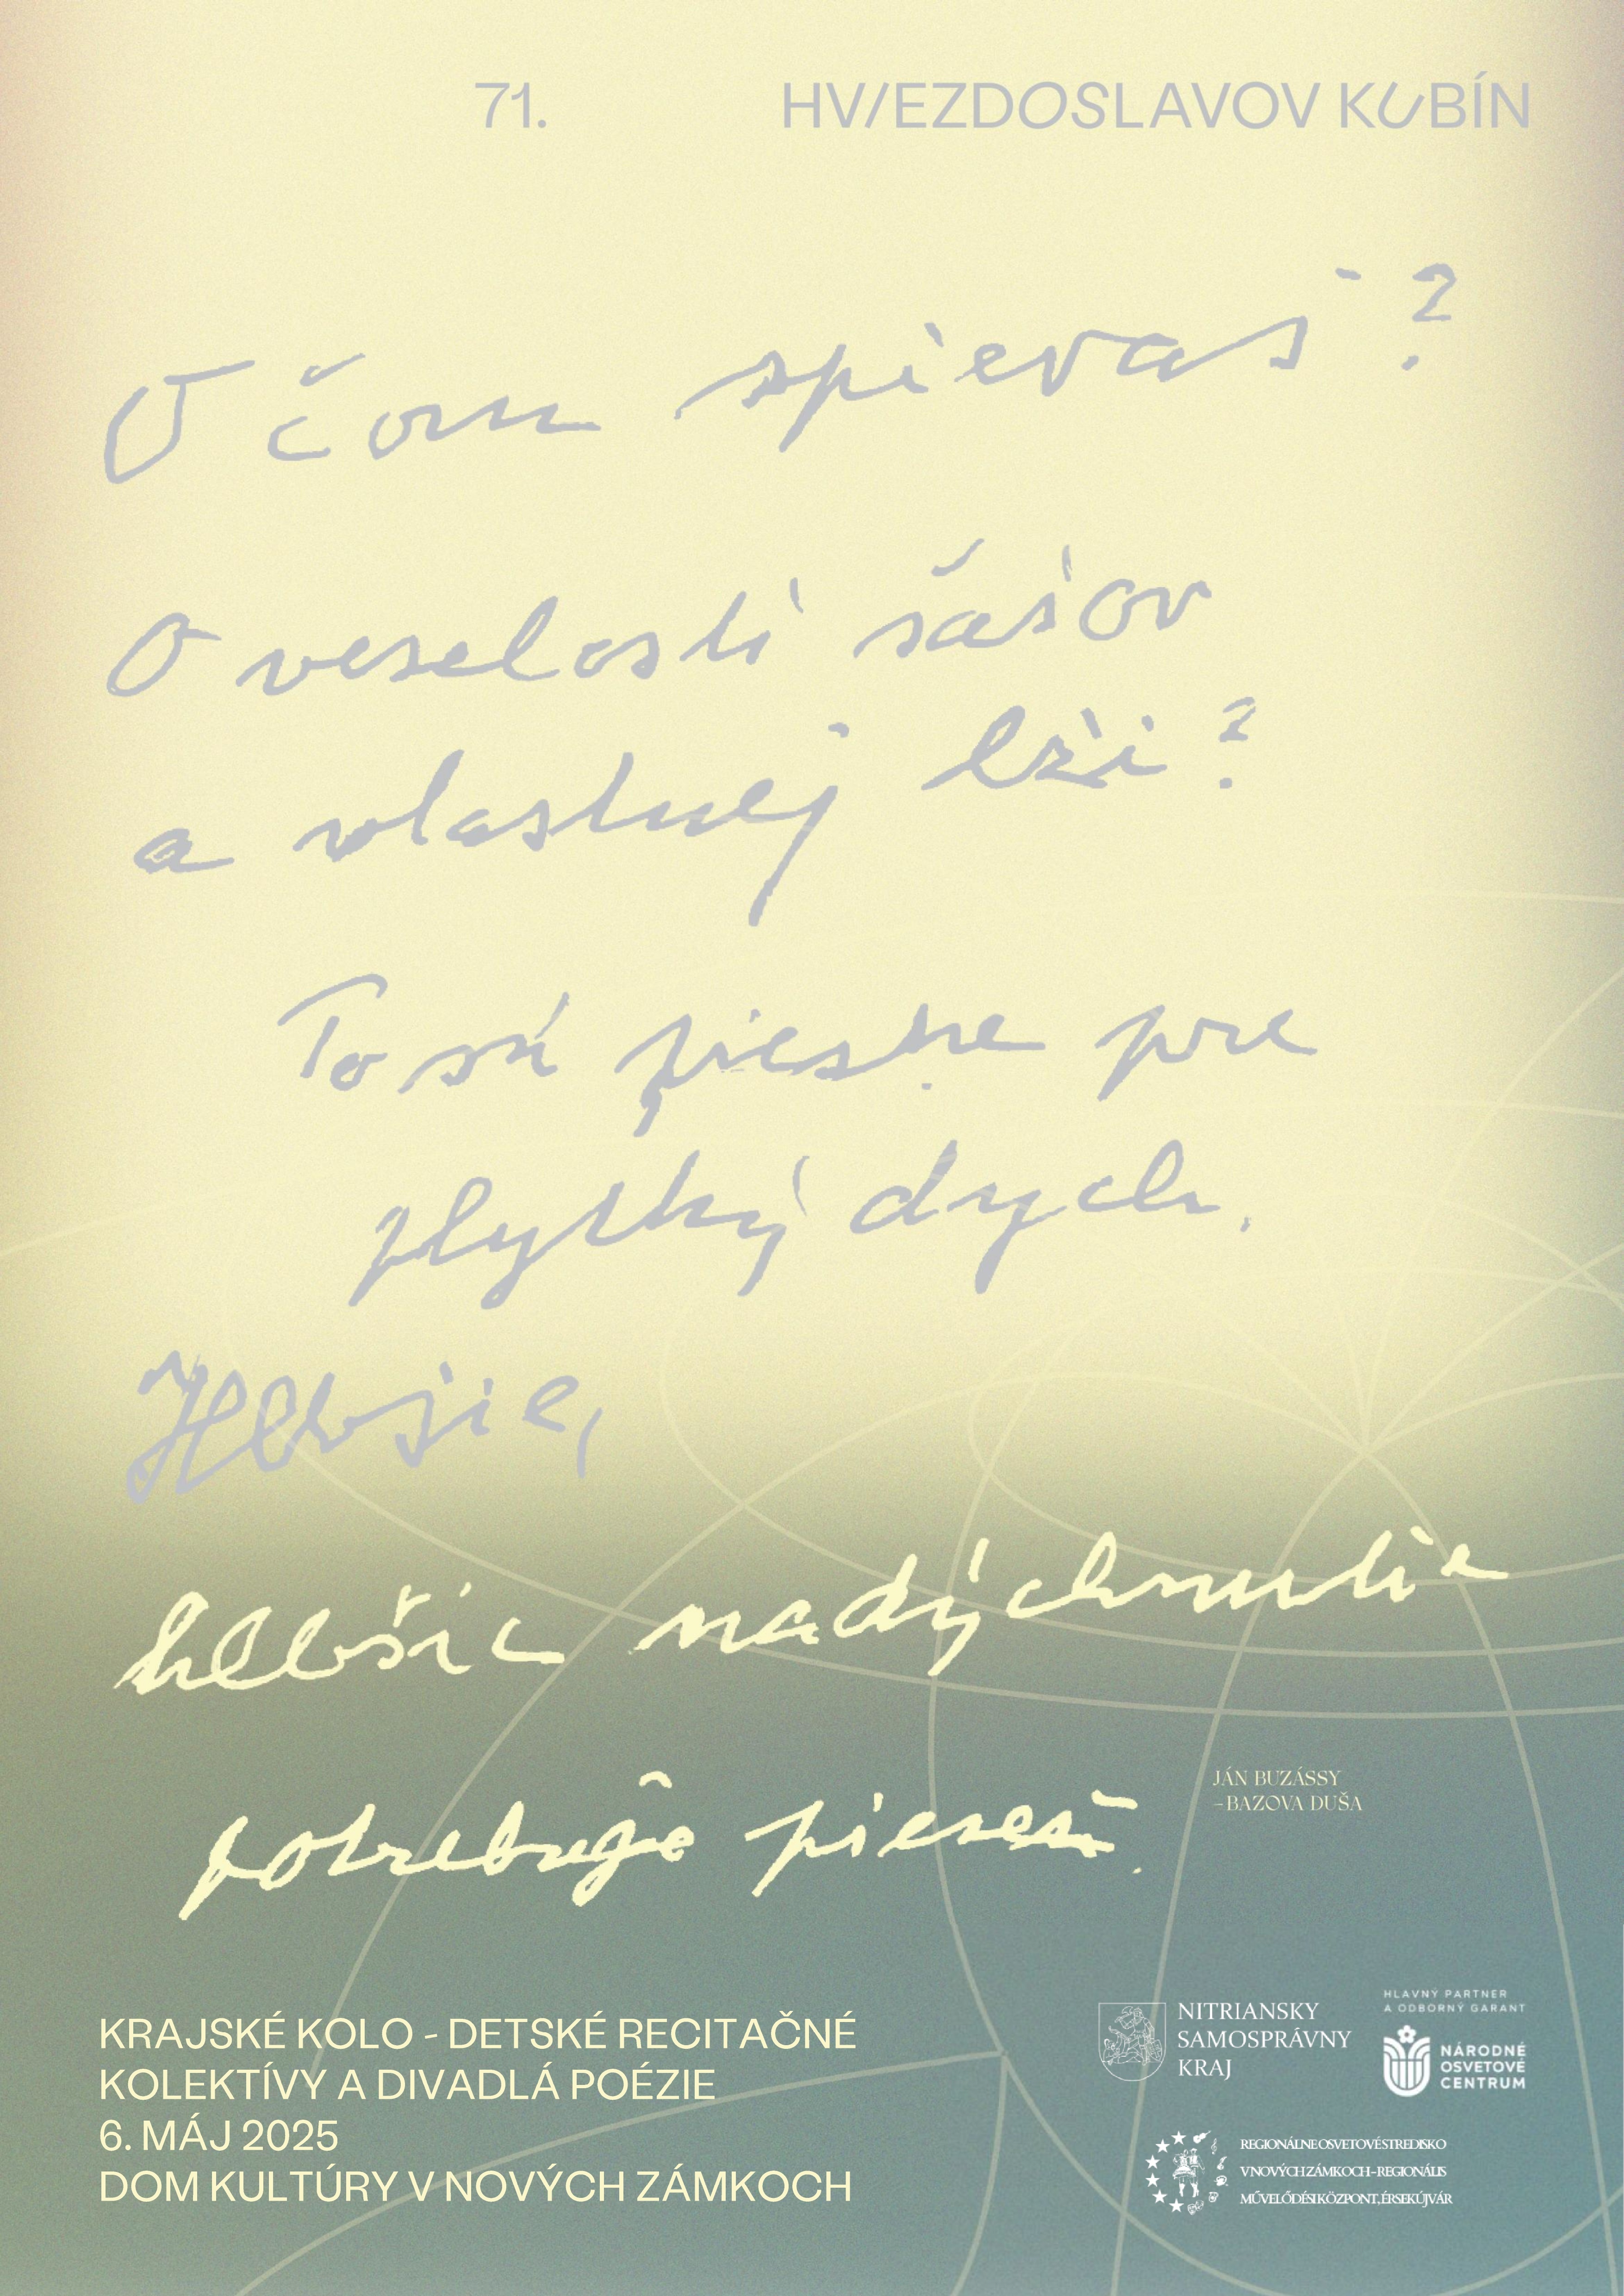 71. HVIEZDOSLAVOV KUBÍN
O čom spievaš?
O veselosti šašov
a vlastnej lži?
To sú piesne pre
plytký dych.
Hlbšie,
hlbšie nadýchnutie
potrebuje pieseň.
JÁN BUZÁSSY
– BAZOVA DUŠA
KRAJSKÉ KOLO - DETSKÉ RECITAČNÉ
KOLEKTÍVY A DIVADLÁ POÉZIE
6. MÁJ 2025
DOM KULTÚRY V NOVÝCH ZÁMKOCH
NITRIANSKY
SAMOSPRÁVNY
KRAJ
HLAVNÝ PARTNER
A ODBORNÝ GARANT
NÁRODNÉ
OSVETOVÉ
CENTRUM
REGIONÁLNE OSVETOVÉ STREDISKO
V NOVÝCH ZÁMKOCH - REGIONÁLIS
MŰVELŐDÉSI KÖZPONT, ÉRSEKÚJVÁR